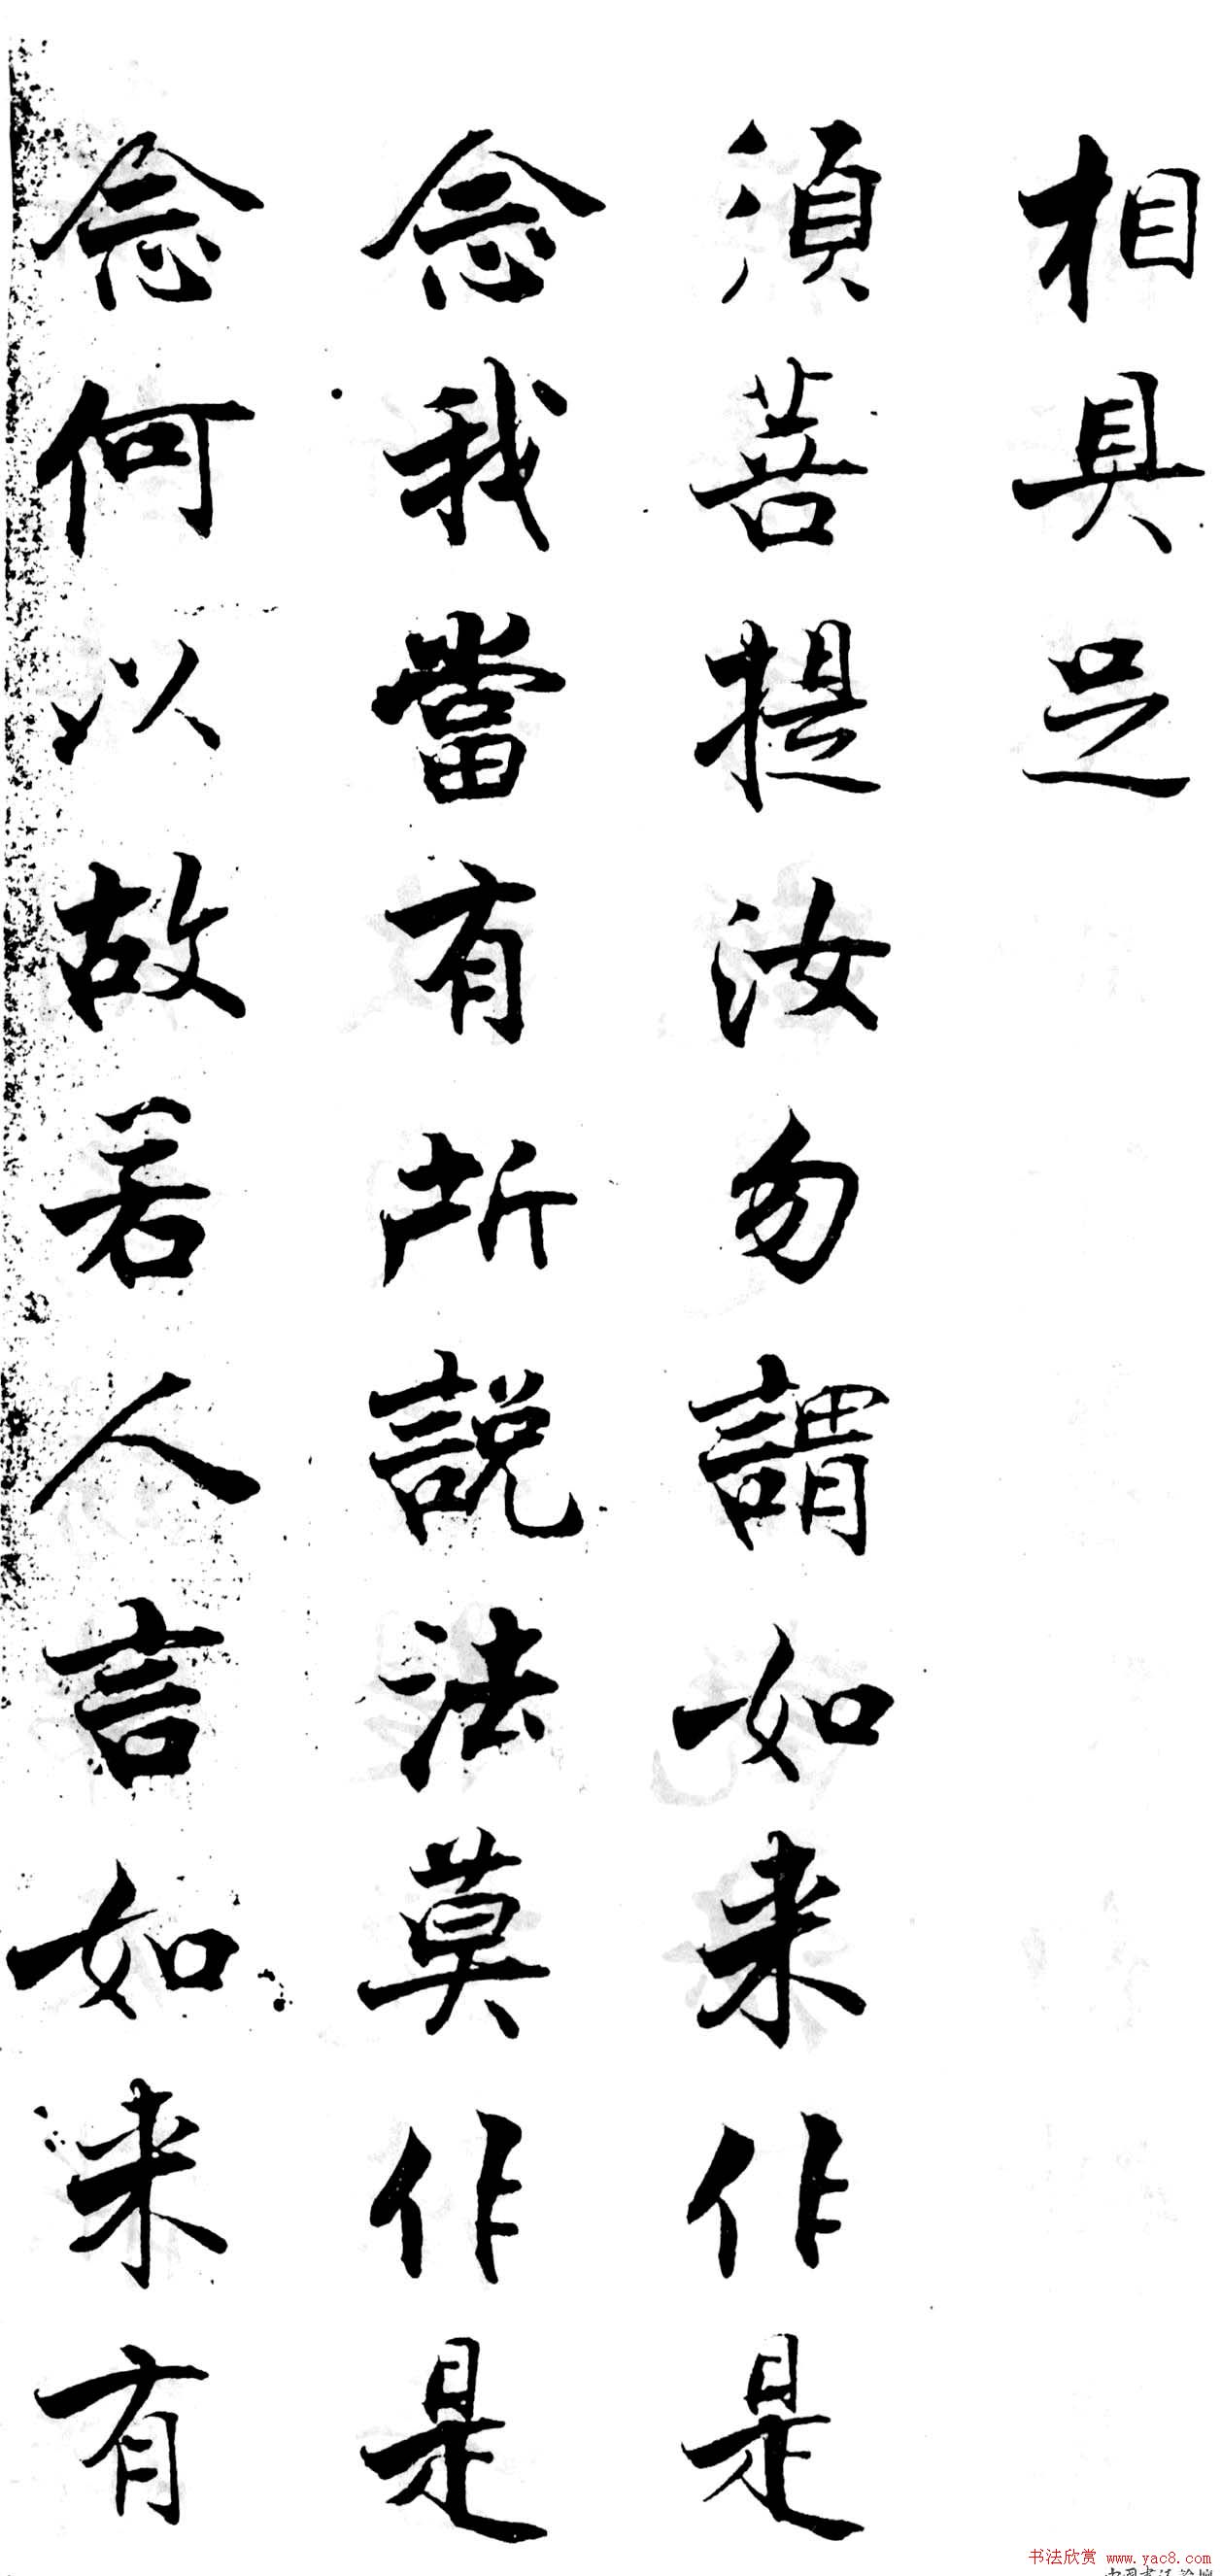 相具足
須菩提汝勿謂如来作是
念我當有所説法莫作是
念何以故若人言如来有
书法欣赏 www.yac8.com